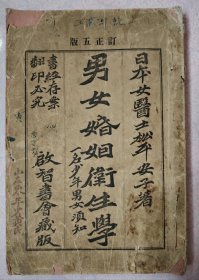 訂正五版
日本女醫士松平安子著
男女婚姻衛生學
一名少年男女須知
書經存案
翻印必究
啟智書會藏版